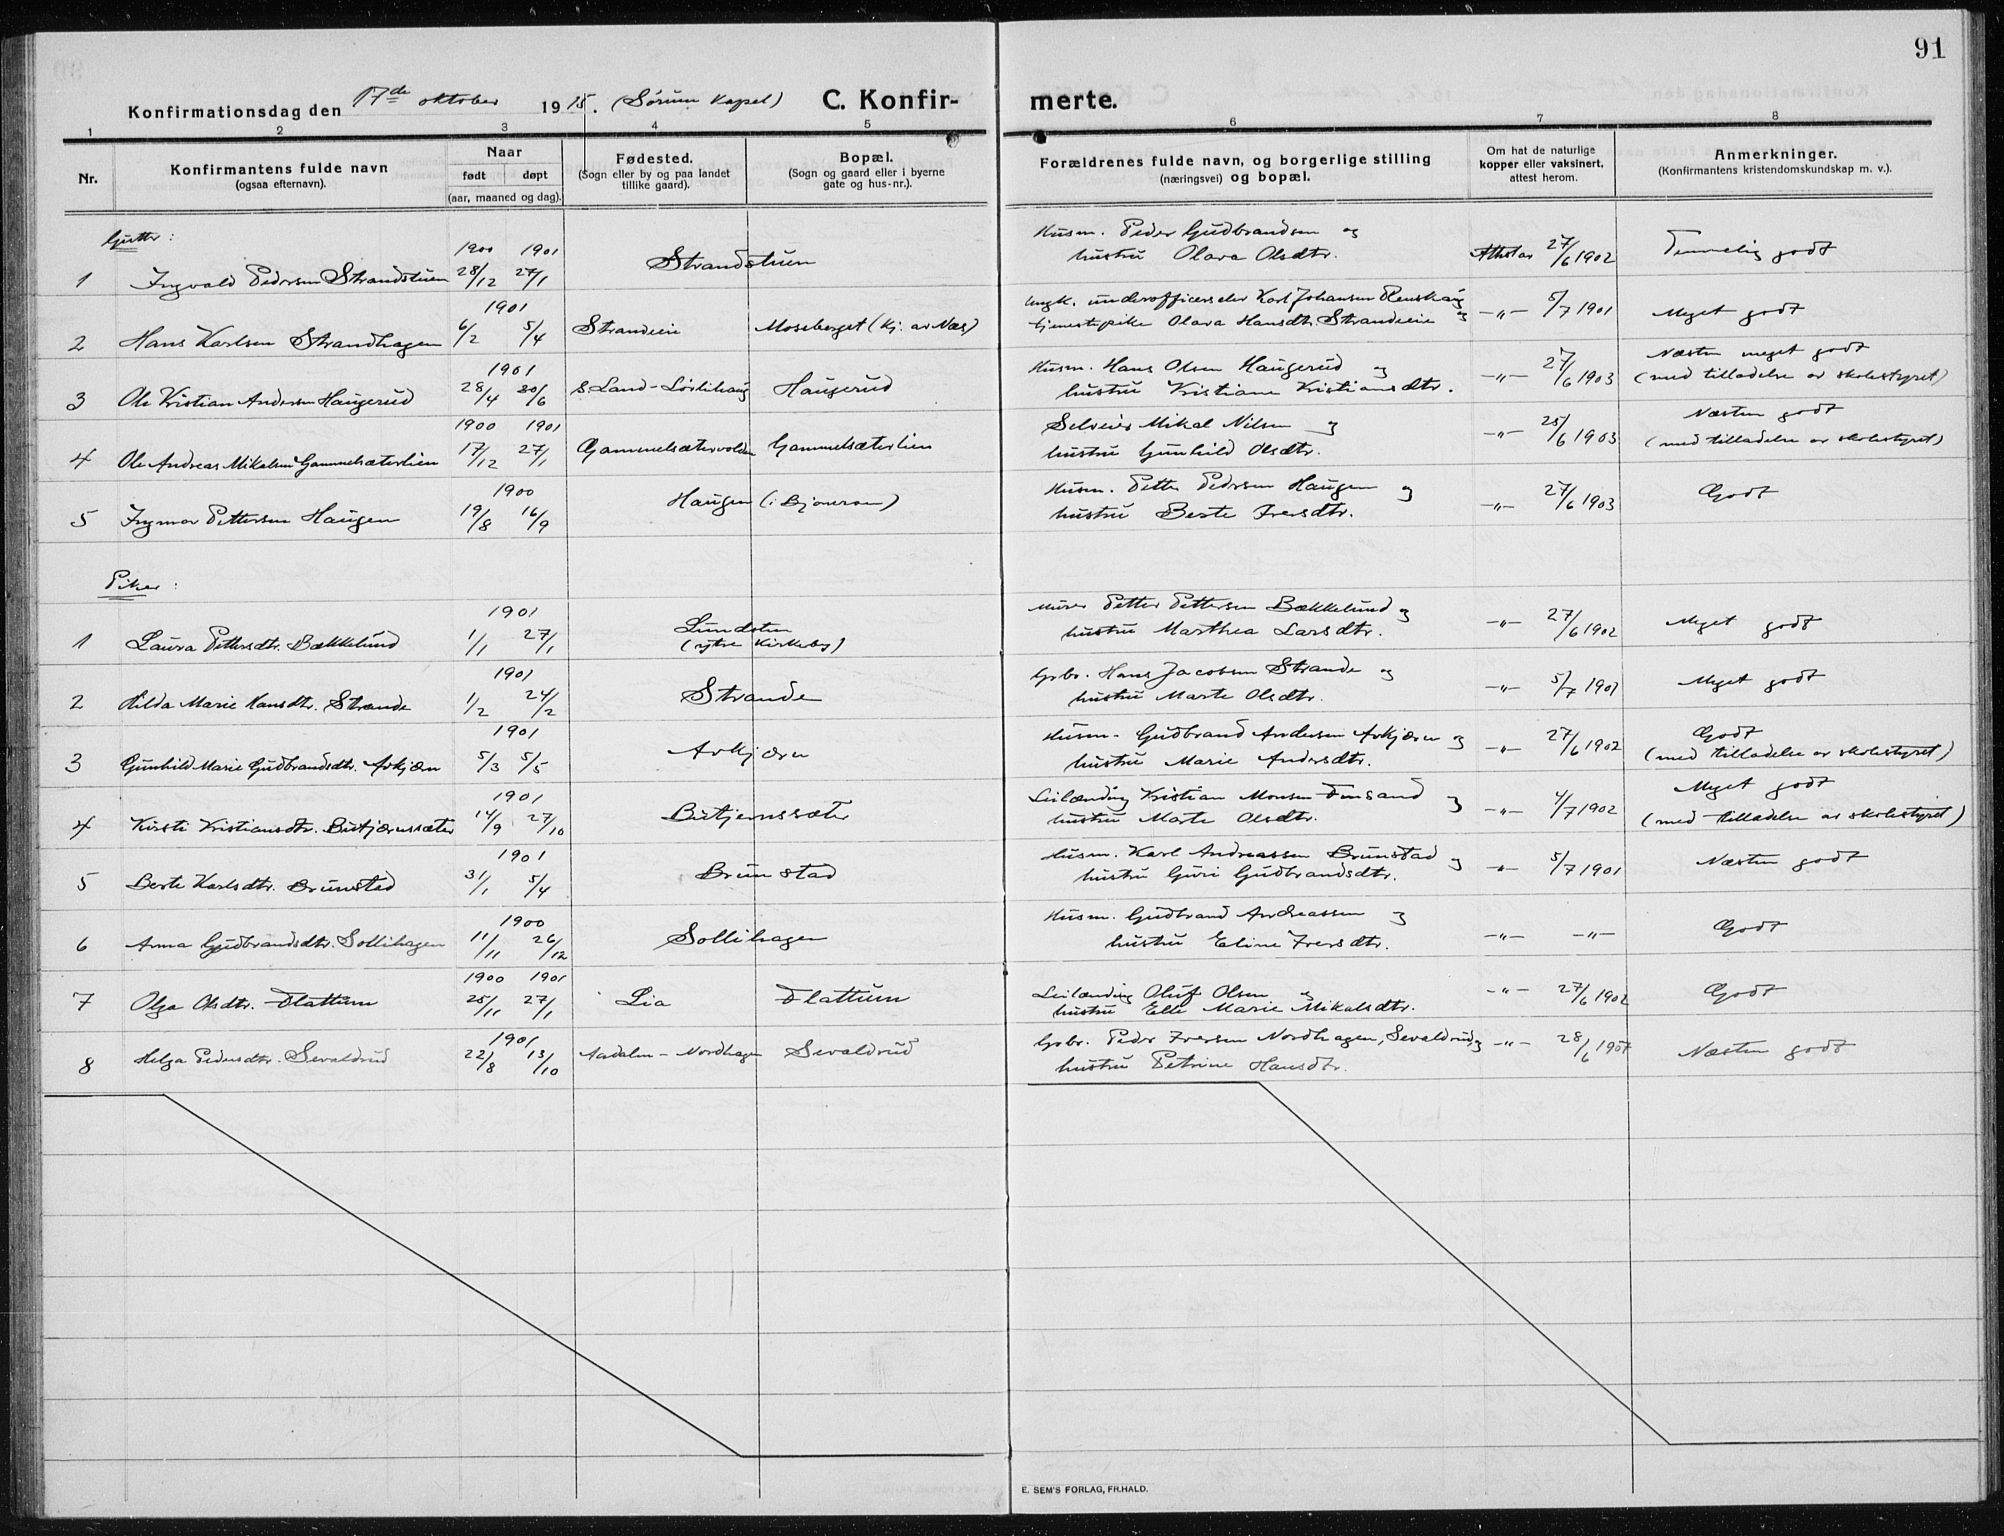 91
Konfirmationsdag den 17de oktober 1915. (Sørum Kapel) C. Konfir- merte.
1 2 3 4 5 6 7 8
Nr. Konfirmantens fulde navn (ogsaa efternavn). Naar født døpt (aar, maaned og dag). Fødested. (Sogn eller by og paa landet tillike gaard). Bopæl. (Sogn og gaard eller i byerne gate og hus-nr.). Forældrenes fulde navn, og borgerlige stilling (næringsvei) og bopæl. Om hat de naturlige kopper eller vaksinert, attest herom. Anmerkninger. (Konfirmantens kristendomskundskap m. v.).
Gutter:
1900 1901 Husm. Peder Gudbrandsen og
1 Ingvald Pedersen Strandstuen 28/12 27/1 Strandstuen hustru Olava Olsdtr. Athstas 27/6 1902 Temmelig godt
1901 Ungk. underofficerselev Karl Johansen
2 Hans Karlsen Strandhagen 6/2 5/4 Strandeie Moseberget (Kj. av Næs) tjenestepike Olava Hansdtr. Strandeie og -"- 5/7 1901 Meget godt
1901 Husm. Hans Olsen Haugerud og Næsten meget godt
3 Ole Kristian Andersen Haugerud 28/4 30/6 S. Land - Haugerud hustru Kristiane Kristiansdtr. -"- 27/6 1903 (med tilladelse av skolestyret)
1900 1901 Selveier Mikal Nilsen og Næsten godt
4 Ole Andreas Mikalsen Gammelsæterlien 17/12 27/1 Gammelsætervolden Gammelsæterlien hustru Gunhild Olsdtr. -"- 25/6 1903 (med tilladelse av skolestyret)
1900 Husm. Petter Pedersen Haugen og
5 Ingmar Pettersen Haugen 19/8 16/9 Haugen (i Bjoneroa) hustru Berte Iversdtr. -"- 27/6 1903 Godt
Piker:
1901 Murer Petter Pettersen Bækkelund og
1 Laura Pettersdtr. Bækkelund 1/1 27/1 Lundsten (ytre Kirkeby) hustru Marthea Larsdtr. -"- 27/6 1902 Meget godt
1901 Gbr. Hans Jacobsen Strande og
2 Hilda Marie Hansdtr. Strande 1/2 24/2 Strande hustru Marte Olsdtr. -"- 5/7 1901 Meget godt
1901 Husm. Gudbrand Andersen Avkjærn og Godt
3 Gunhild Marie Gudbrandsdtr. Avkjærn 5/3 5/5 Avkjærn hustru Marie Andersdtr. -"- 27/6 1902 (med tilladelse av skolestyret)
1901 Leilænding Kristian Monsen Finsand og Meget godt
4 Kirsti Kristiansdtr. Butjernssæter 14/9 27/10 Butjernssæter hustru Marte Olsdtr. -"- 4/7 1902 (med tilladelse av skolestyret)
1901 Husm. Karl Andreassen Brunstad og
5 Berte Karlsdtr. Brunstad 31/1 5/4 Brunstad hustru Guri Gudbrandsdtr. -"- 5/7 1901 Næsten godt
1900 Husm. Gudbrand Andreassen og
6 Anna Gudbrandsdtr. Sollihagen 11/11 26/12 Sollihagen hustru Eline Iversdtr. -"- -"- Godt
1900 1901 Leilænding Oluf Olsen og
7 Olga Olsdtr. Flattum 25/11 27/1 Lia Flattum hustru Elle Marie Mikalsdtr. -"- 27/6 1902 Godt
1901 Gbr. Peder Iversen Nordhagen, Sevaldrud, og
8 Helga Pedersdtr. Sevaldrud 22/8 13/10 Aadalen - Nordhagen Sevaldrud hustru Petrine Hansdtr. -"- 28/6 1907 Næsten godt
E. SEM'S FORLAG, FR.HALD.